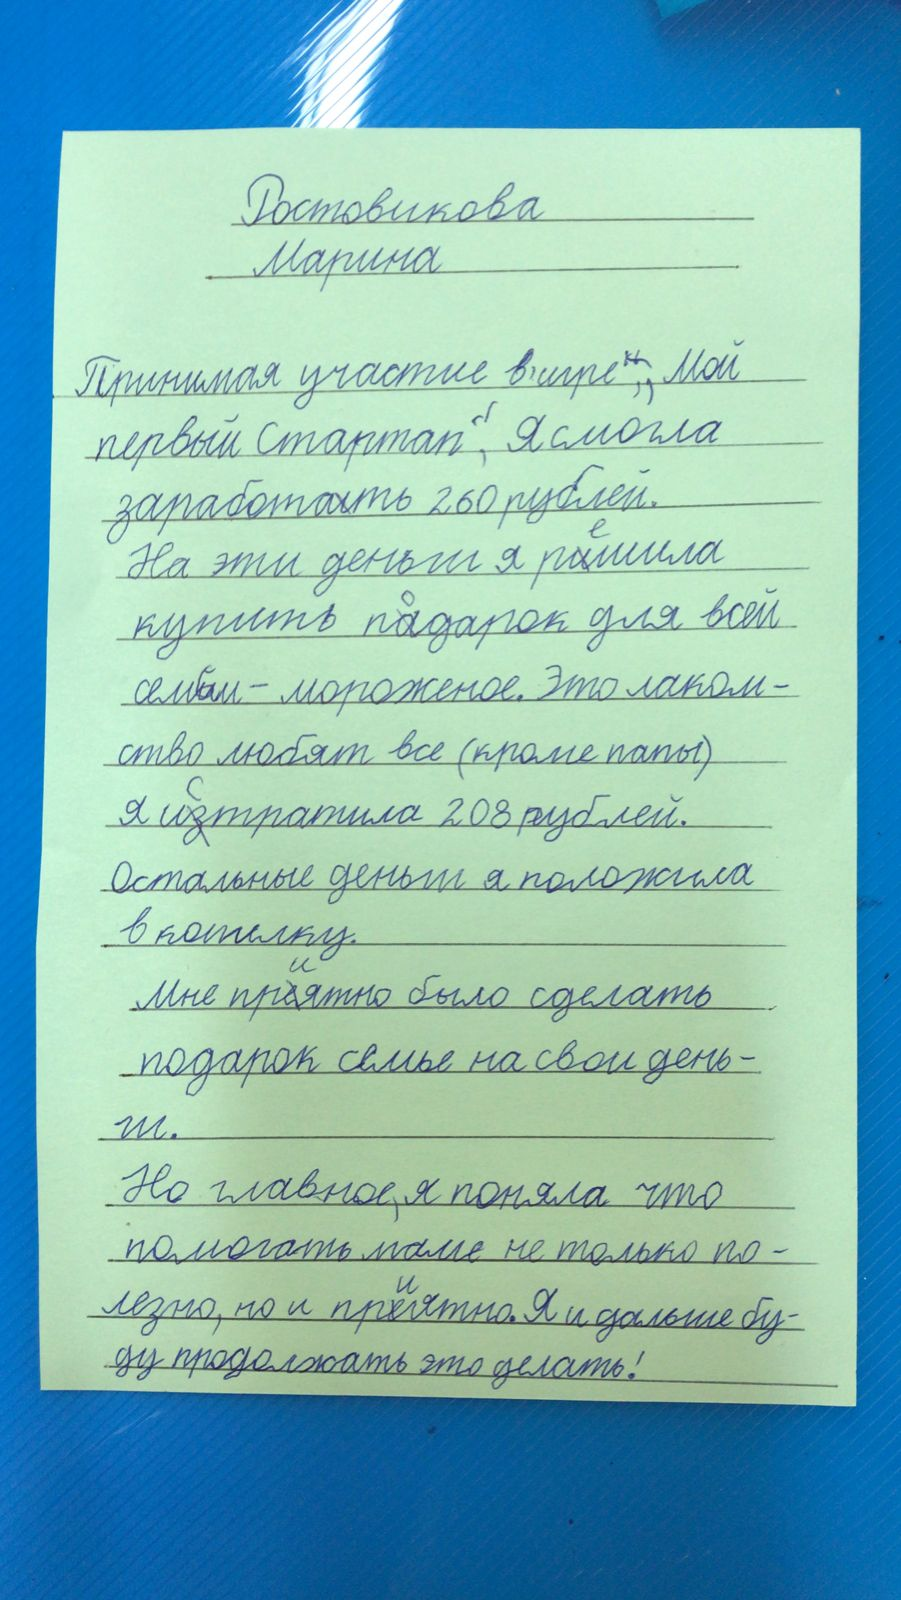 Ростовикова
Марина
Принимая участие в игре „Мой
первый Стартап", Я смогла
заработать 260 рублей.
На эти деньги я решила
купить подарок для всей
семьи - мороженое. Это лаком-
ство любят все (кроме папы)
Я истратила 208 рублей.
Остальные деньги я положила
в копилку.
Мне приятно было сделать
подарок семье на свои день-
ги.
Но главное, я поняла что
помогать маме не только по-
лезно, но и приятно. Я и дальше бу-
ду продолжать это делать!